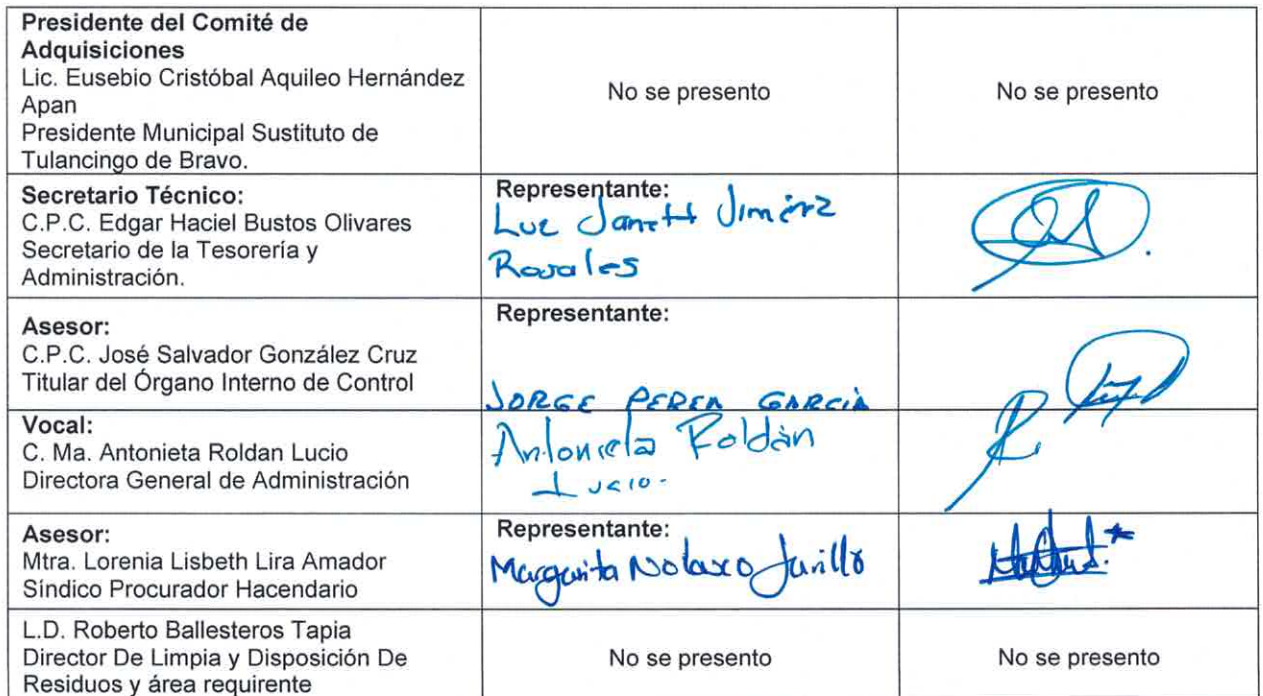 Presidente del Comité de
Adquisiciones
Lic. Eusebio Cristóbal Aquileo Hernández
Apan
Presidente Municipal Sustituto de
Tulancingo de Bravo.
No se presento
No se presento
Secretario Técnico:
C.P.C. Edgar Haciel Bustos Olivares
Secretario de la Tesorería y
Administración.
Representante:
Luz Janett Jiménez
Rosales
Asesor:
C.P.C. José Salvador González Cruz
Titular del Órgano Interno de Control
Representante:
JORGE PEREA GARCÍA
Vocal:
C. Ma. Antonieta Roldan Lucio
Directora General de Administración
Antonieta Roldán
Lucio.
Asesor:
Mtra. Lorenia Lisbeth Lira Amador
Síndico Procurador Hacendario
Representante:
Margarita Nolasco
L.D. Roberto Ballesteros Tapia
Director De Limpia y Disposición De
Residuos y área requirente
No se presento
No se presento